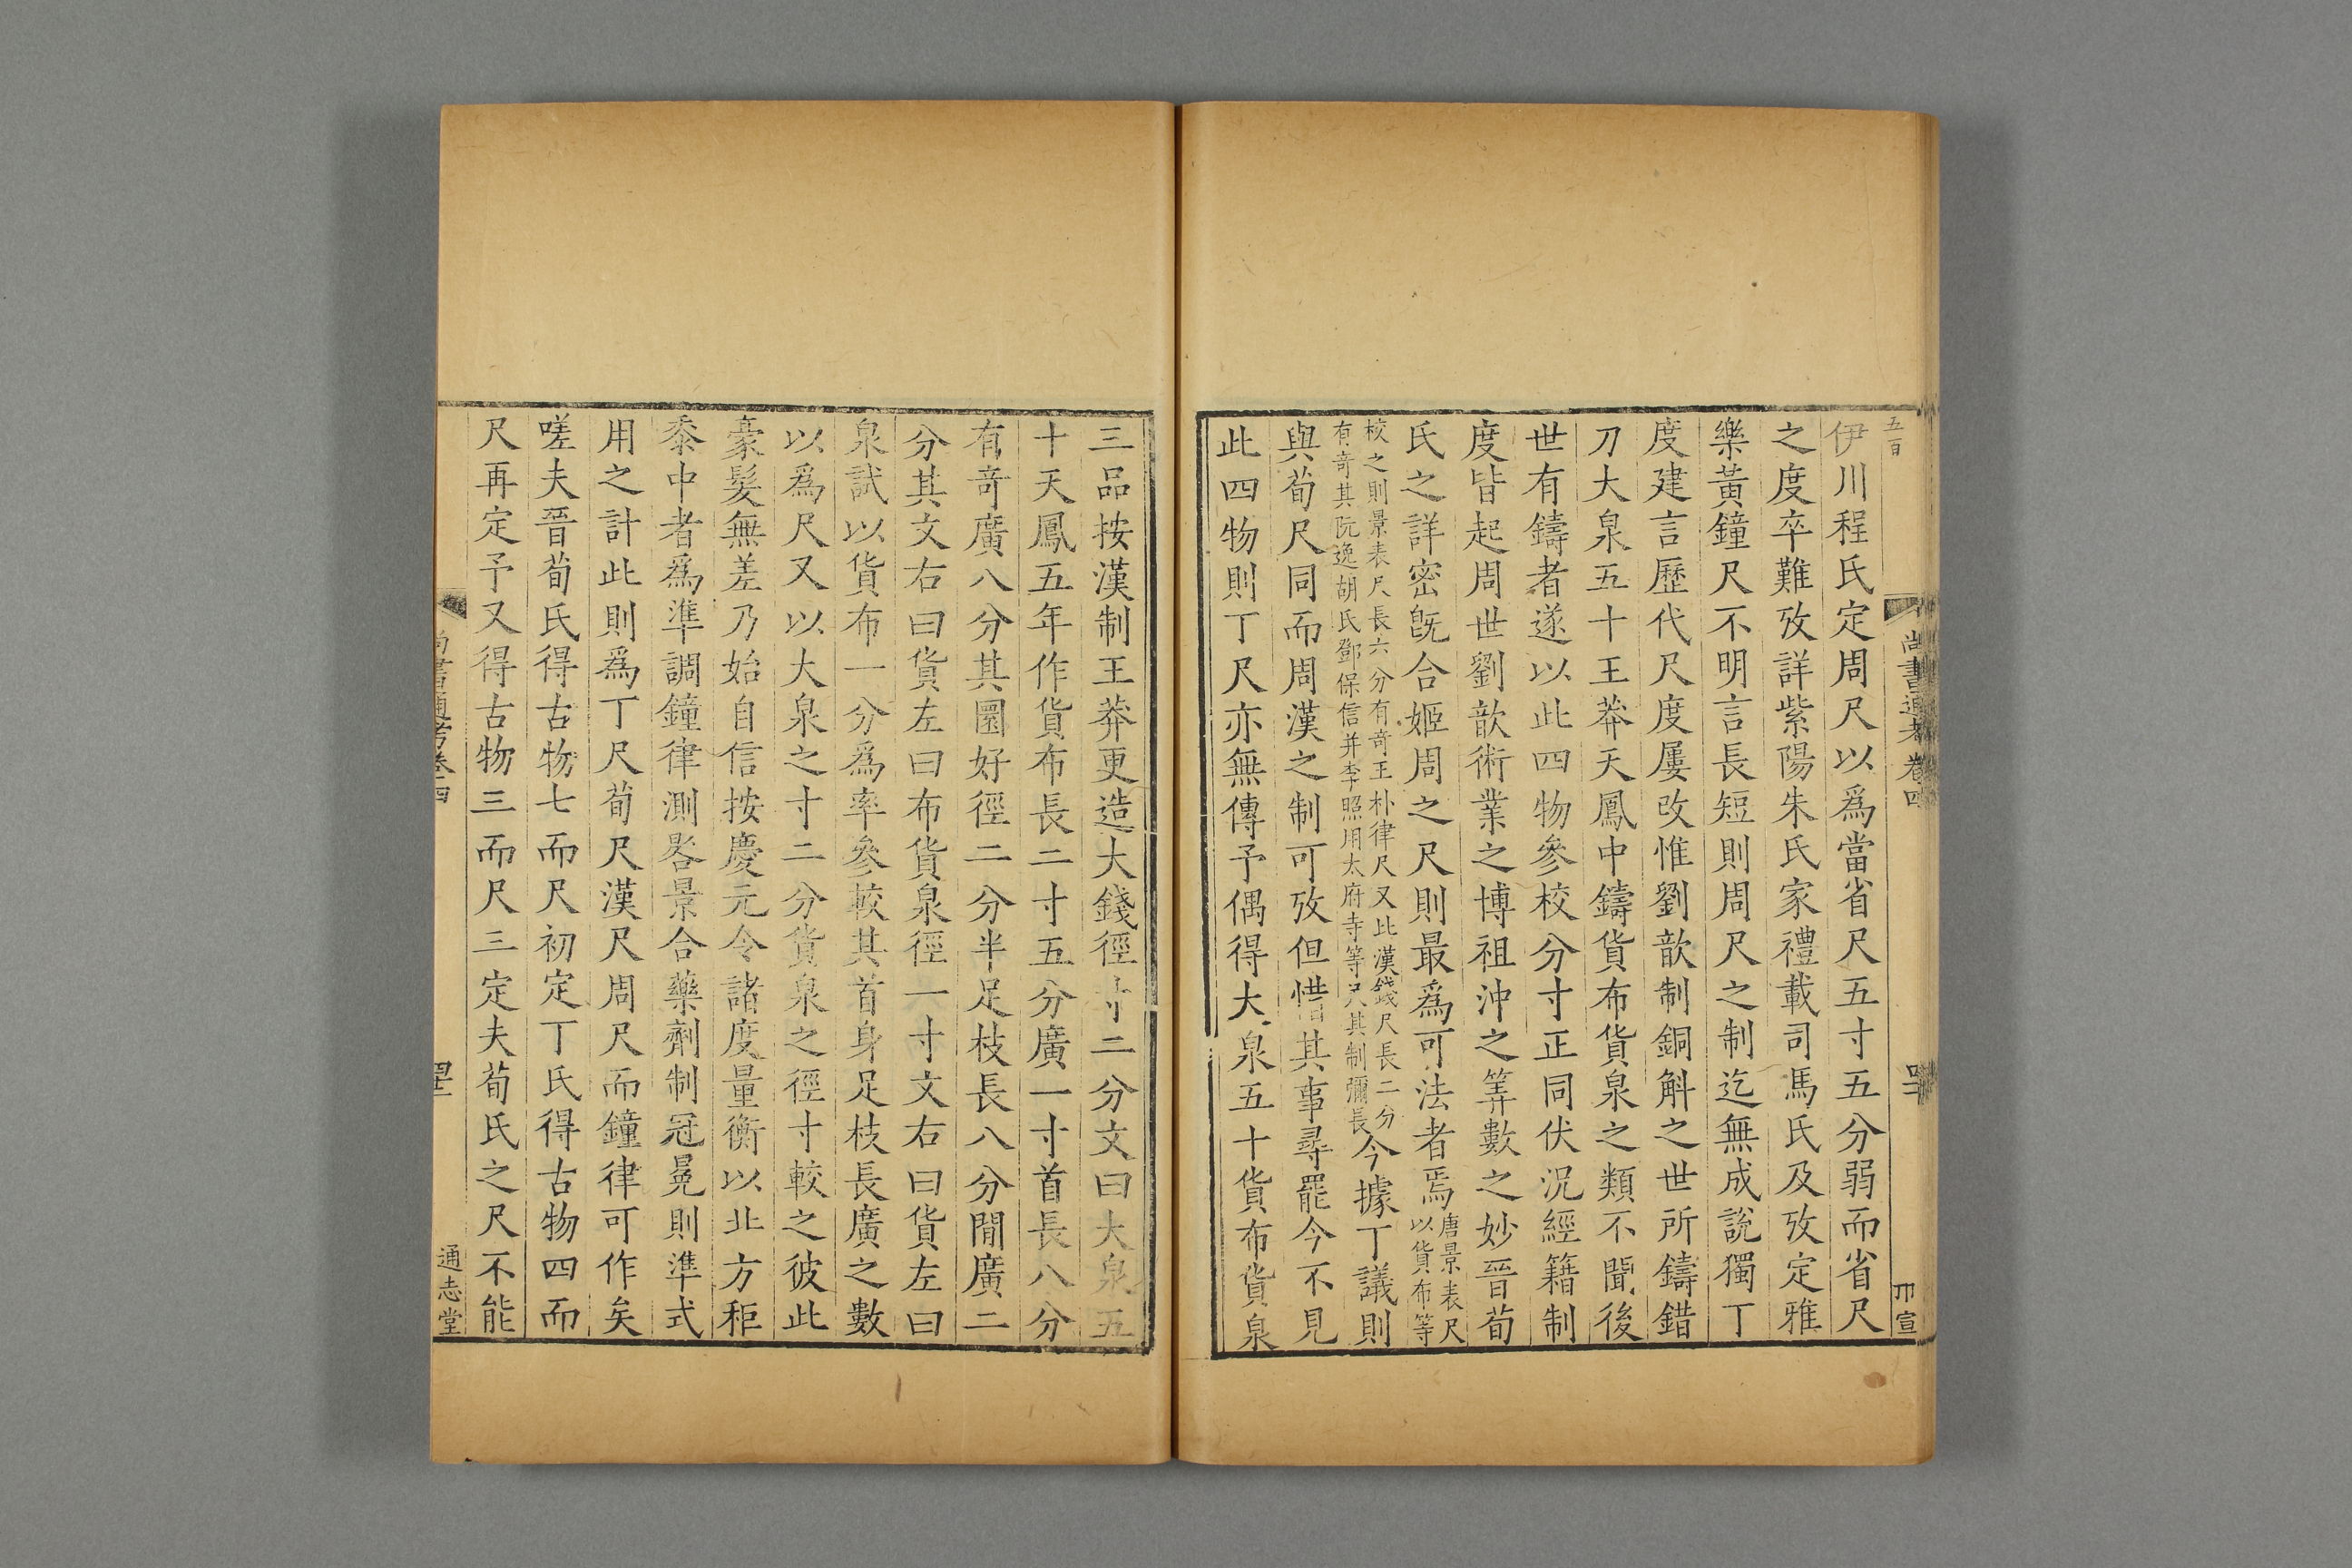 五百
尚書通考卷四
四十
伊川程氏定周尺以爲當省尺五寸五分弱而省尺
之度卒難攷詳紫陽朱氏家禮載司馬氏及攷定雅
樂黃鐘尺不明言長短則周尺之制迄無成說獨丁
度建言歷代尺度屢改惟劉歆制銅斛之世所鑄錯
刀大泉五十王莽天鳳中鑄貨布貨泉之類不聞後
世有鑄者遂以此四物參校分寸正同伏況經籍制
度皆起周世劉歆術業之博祖沖之筭數之妙晉荀
氏之詳密旣合姬周之尺則最爲可法者焉唐景表尺
以貨布等
校之則景表尺長六分有奇王朴律尺又比漢錢尺長二分
有奇其阮逸胡氏鄧保信并李照用太府寺等尺其制彌長
今據丁議則
與荀尺同而周漢之制可攷但惜其事尋罷今不見
此四物則丁尺亦無傳予偶得大泉五十貨布貨泉
三品按漢制王莽更造大錢徑寸二分文曰大泉五
十天鳳五年作貨布長二寸五分廣一寸首長八分
有奇廣八分其圜好徑二分半足枝長八分閒廣二
分其文右曰貨左曰布貨泉徑一寸文右曰貨左曰
泉試以貨布一分爲率參較其首身足枝長廣之數
以爲尺又以大泉之寸二分貨泉之徑寸較之彼此
豪髮無差乃始自信按慶元令諸度量衡以北方秬
黍中者爲準調鐘律測晷景合藥劑制冠冕則準式
用之計此則爲丁尺荀尺漢尺周尺而鐘律可作矣
嗟夫晉荀氏得古物七而尺初定丁氏得古物四而
尺再定予又得古物三而尺三定夫荀氏之尺不能
尚書通考卷四
通志堂